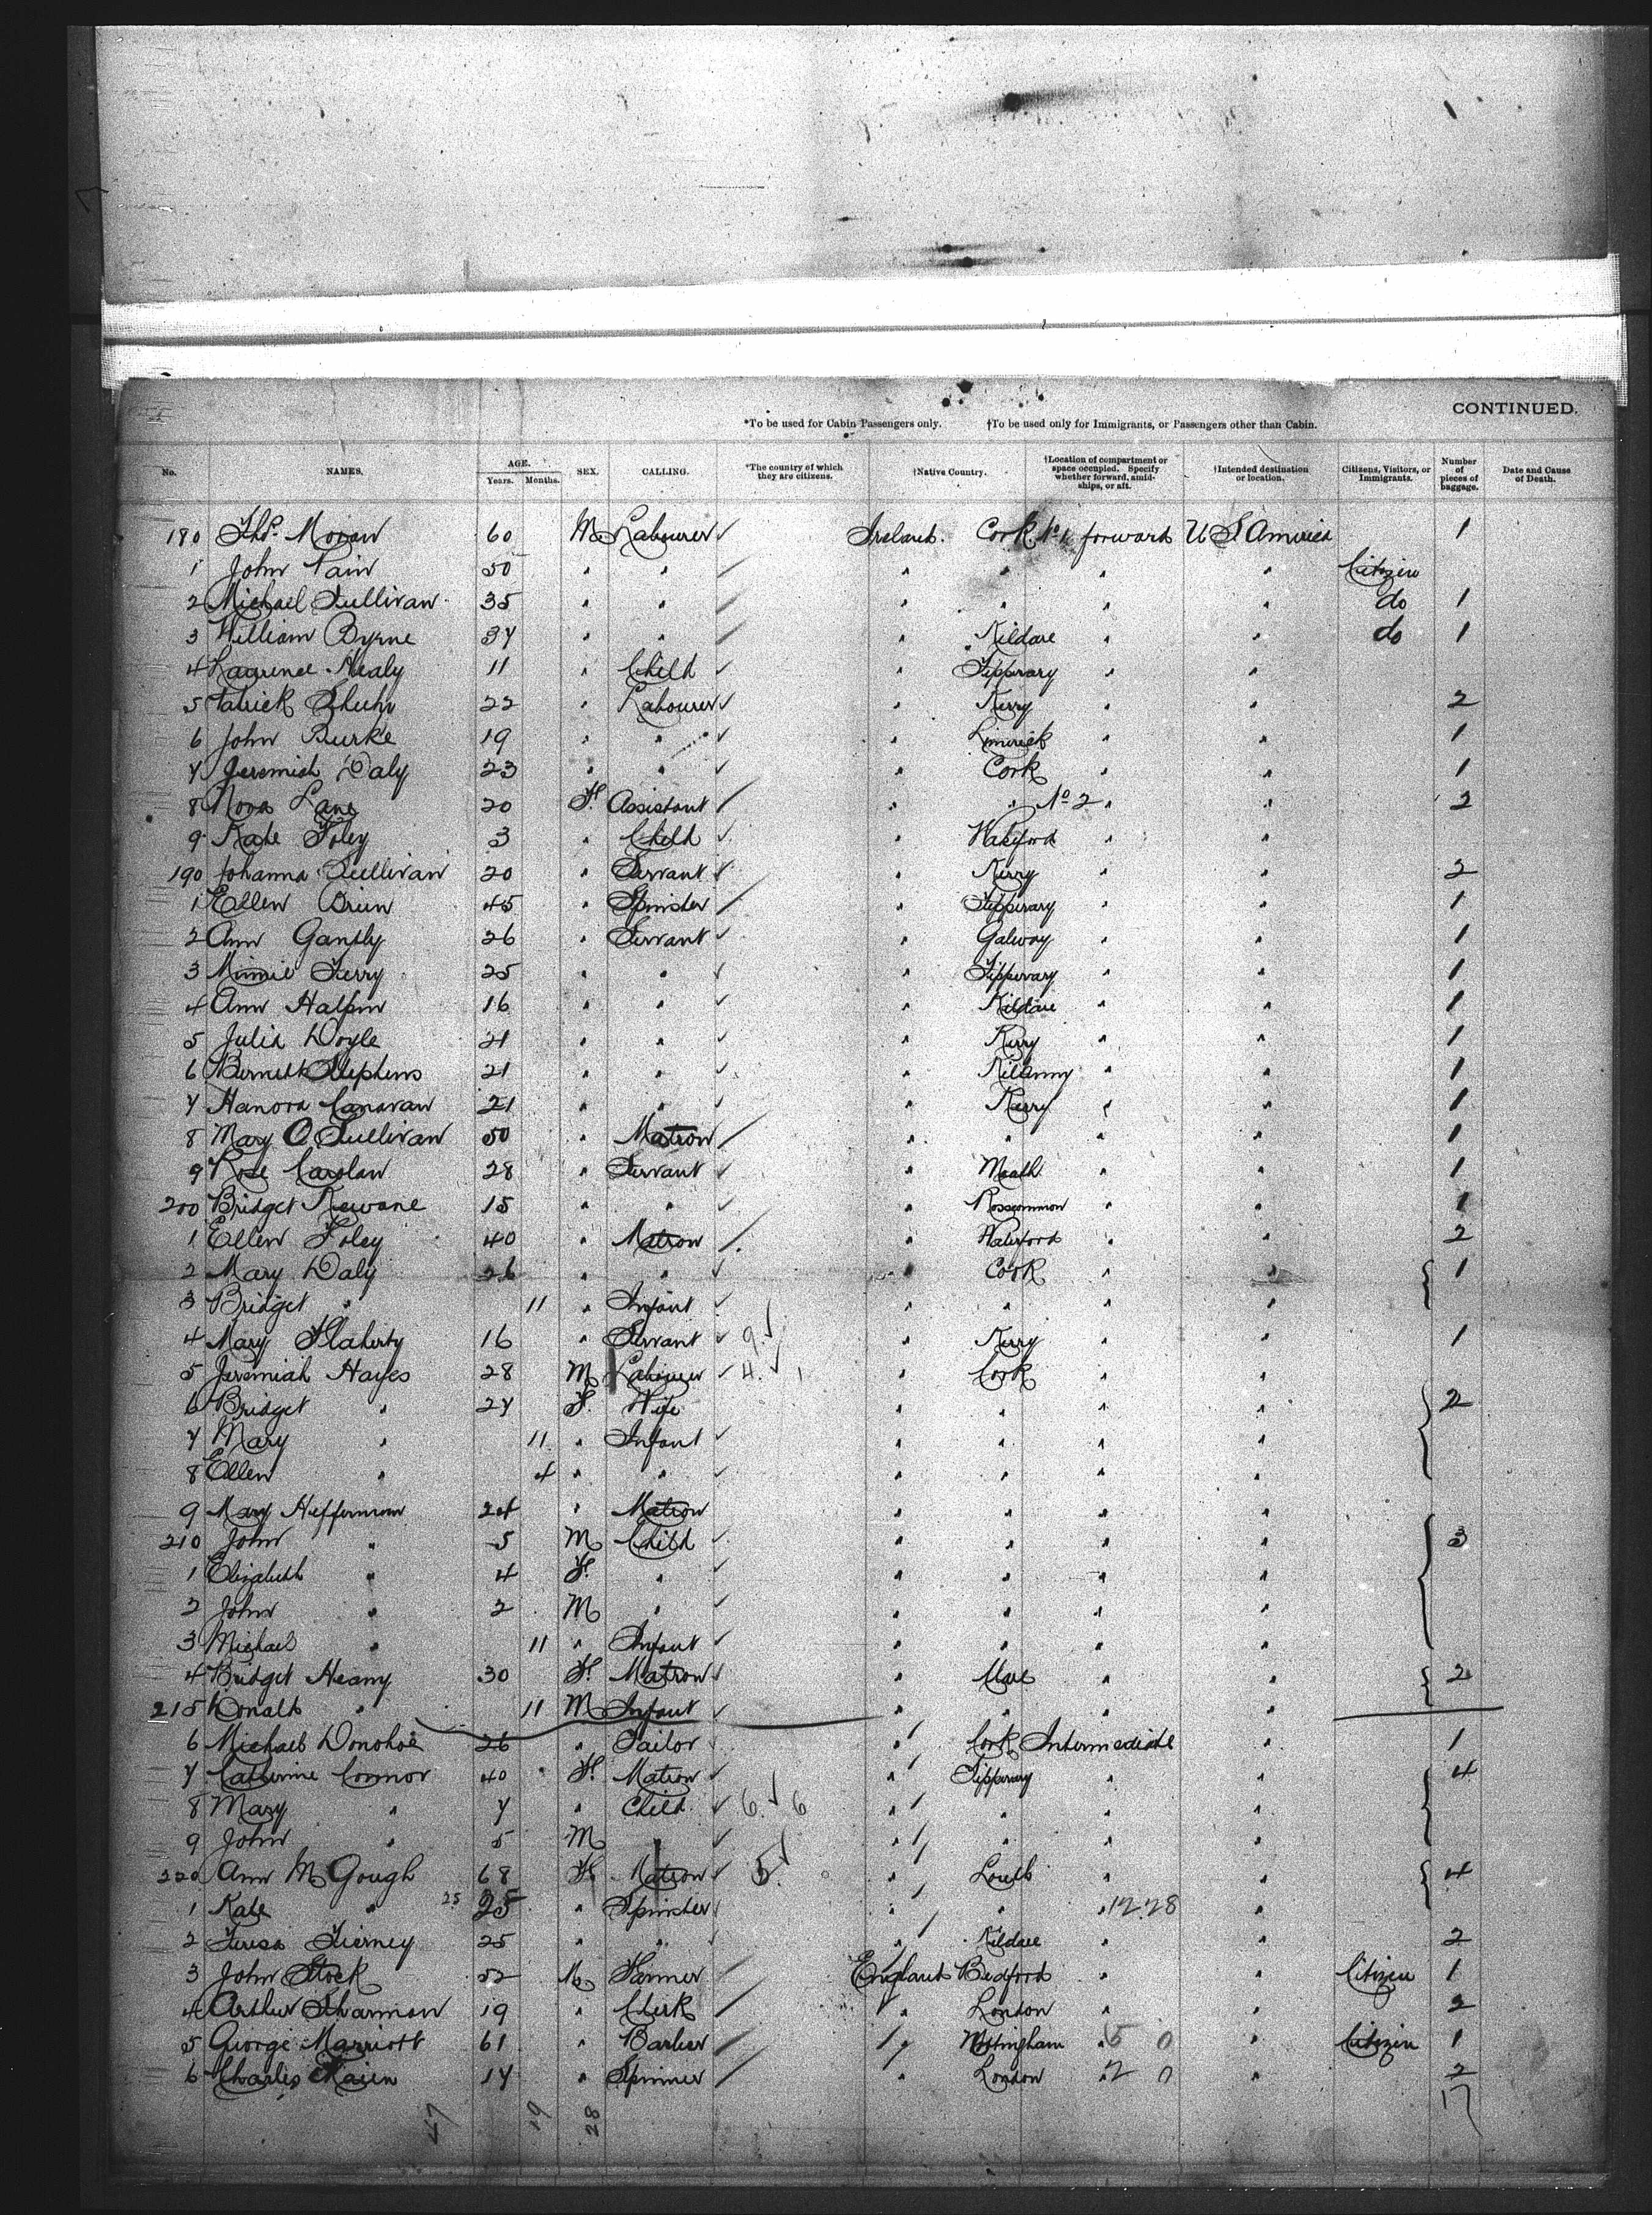 CONTINUED.
*To be used for Cabin Passengers only. †To be used only for Immigrants, or Passengers other than Cabin.
No. NAMES. AGE. Years. Months. SEX. CALLING. *The country of which they are citizens. †Native Country. †Location of compartment or space occupied. Specify whether forward, amidships, or aft. †Intended destination or location. Citizens, Visitors, or Immigrants. Number of pieces of baggage. Date and Cause of Death.
180 Thos. Moran 60 M Labourer ✓ Ireland. Cork No 1 forward U S America 1
1 John 50 " " / " " " " Citizen
2 Michael Sullivan 35 " " / " " " " do 1
3 William Byrne 37 " " / " Kildare " " do 1
4 Laurence Healy 11 " Child ✓ " Tipperary " "
5 Patrick 22 " Labourer ✓ " Kerry " " 2
6 John Burke 19 " " ✓ " Limerick " " 1
7 Jeremiah Daly 23 " " ✓ " Cork " " 1
8 Nora Lane 20 F. Assistant / " " No 2 " " 2
9 Kate Foley 3 " Child ✓ " Waterford " "
190 Johanna Sullivan 20 " Servant ✓ " Kerry " " 2
1 Ellen Brien 45 " Spinster / " Tipperary " " 1
2 Ann Gantly 26 " Servant ✓ " Galway " " 1
3 Minnie Terry 25 " " ✓ " Tipperary " " 1
4 Ann Halpin 16 " " ✓ " Kildare " " 1
5 Julia Doyle 21 " " ✓ " Kerry " " 1
6 Stephens 21 " " ✓ " Kilkenny " " 1
7 Hanora Canavan 21 " " ✓ " Kerry " " 1
8 Mary O Sullivan 50 " Matron / " " " " 1
9 Rose Carolan 28 " Servant ✓ " Meath " " 1
200 Bridget Kewane 15 " " ✓ " Roscommon " " 1
1 Ellen Foley 40 " Matron / " Waterford " " 2
2 Mary Daly 26 " " ✓ " Cork " " { 1
3 Bridget " 11 " Infant ✓ " " " "
4 Mary Flaherty 16 " Servant ✓ 9 ✓ " Kerry " " 1
5 Jeremiah Hayes 28 M Labourer ✓ 4 ✓ " Cork " "
6 Bridget " 27 F. Wife " " " " { 2
7 Mary " 11 " Infant ✓ " " " "
8 Ellen " 4 " " ✓ " " " "
9 Mary Heffernan 24 " Matron " " " "
210 John " 5 M Child ✓ " " " " { 3
1 Elizabeth " 4 F. " ✓ " " " "
2 John " 2 M " ✓ " " " "
3 Michael " 11 " Infant ✓ " " " "
4 Bridget Heany 30 F. Matron ✓ " Clare " " { 2
215 Donald " 11 M Infant ✓ " " " "
6 Michael Donohoe 26 " Tailor ✓ " Cork Intermediate " 1
7 Catherine Connor 40 F. Matron ✓ " Tipperary " " { 4
8 Mary " 7 " Child ✓ 6 ✓ 6 " " " "
9 John " 5 M " ✓ " " " "
220 Ann McGough 68 F. Matron ✓ 5 ✓ " Louth " " { 4
1 Kate " 25 25 " Spinster ✓ " " " 1228 "
2 Teresa Tierney 25 " " ✓ " Kildare " " 2
3 John Stock 52 M Farmer / England Bedford " " Citizen 1
4 Arthur Sharman 19 " Clerk / " London " " 2
5 George Marriott 61 " Barber / " Nottingham " 5 0 " Citizen 1
6 Charles 17 " Spinner / " London " 2 0 " 2
47 19 28 17